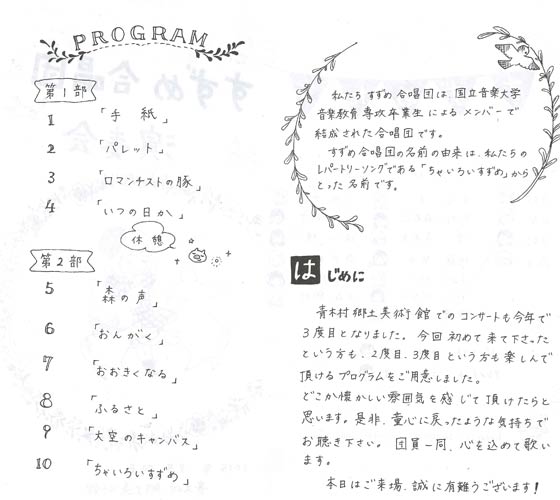 PROGRAM
第1部
1 「手紙」
2 「パレット」
3 「ロマンチストの豚」
4 「いつの日か」
休憩
第2部
5 「森の声」
6 「おんがく」
7 「おおきくなる」
8 「ふるさと」
9 「大空のキャンバス」
10 「ちゃいろいすずめ」
私たち すずめ 合唱団は、国立音楽大学
音楽教育 専攻卒業生 による メンバーで
結成された 合唱団 です。
すずめ 合唱団の名前の由来は、私たちの
レパートリーソングである「ちゃいろいすずめ」から
とった 名前 です。
はじめに
青木村 郷土美術館 での コンサートも今年で
3度目となりました。今回 初めて 来て下さった
という方も、2度目、3度目 という方も 楽しんで
頂ける プログラムを ご用意しました。
どこか懐かしい雰囲気を 感じて 頂けたらと
思います。是非、童心に 戻ったような 気持ちで
お聴き下さい。 団員一同、心を込めて歌い
ます。
本日は ご来場、誠に 有難うございます!